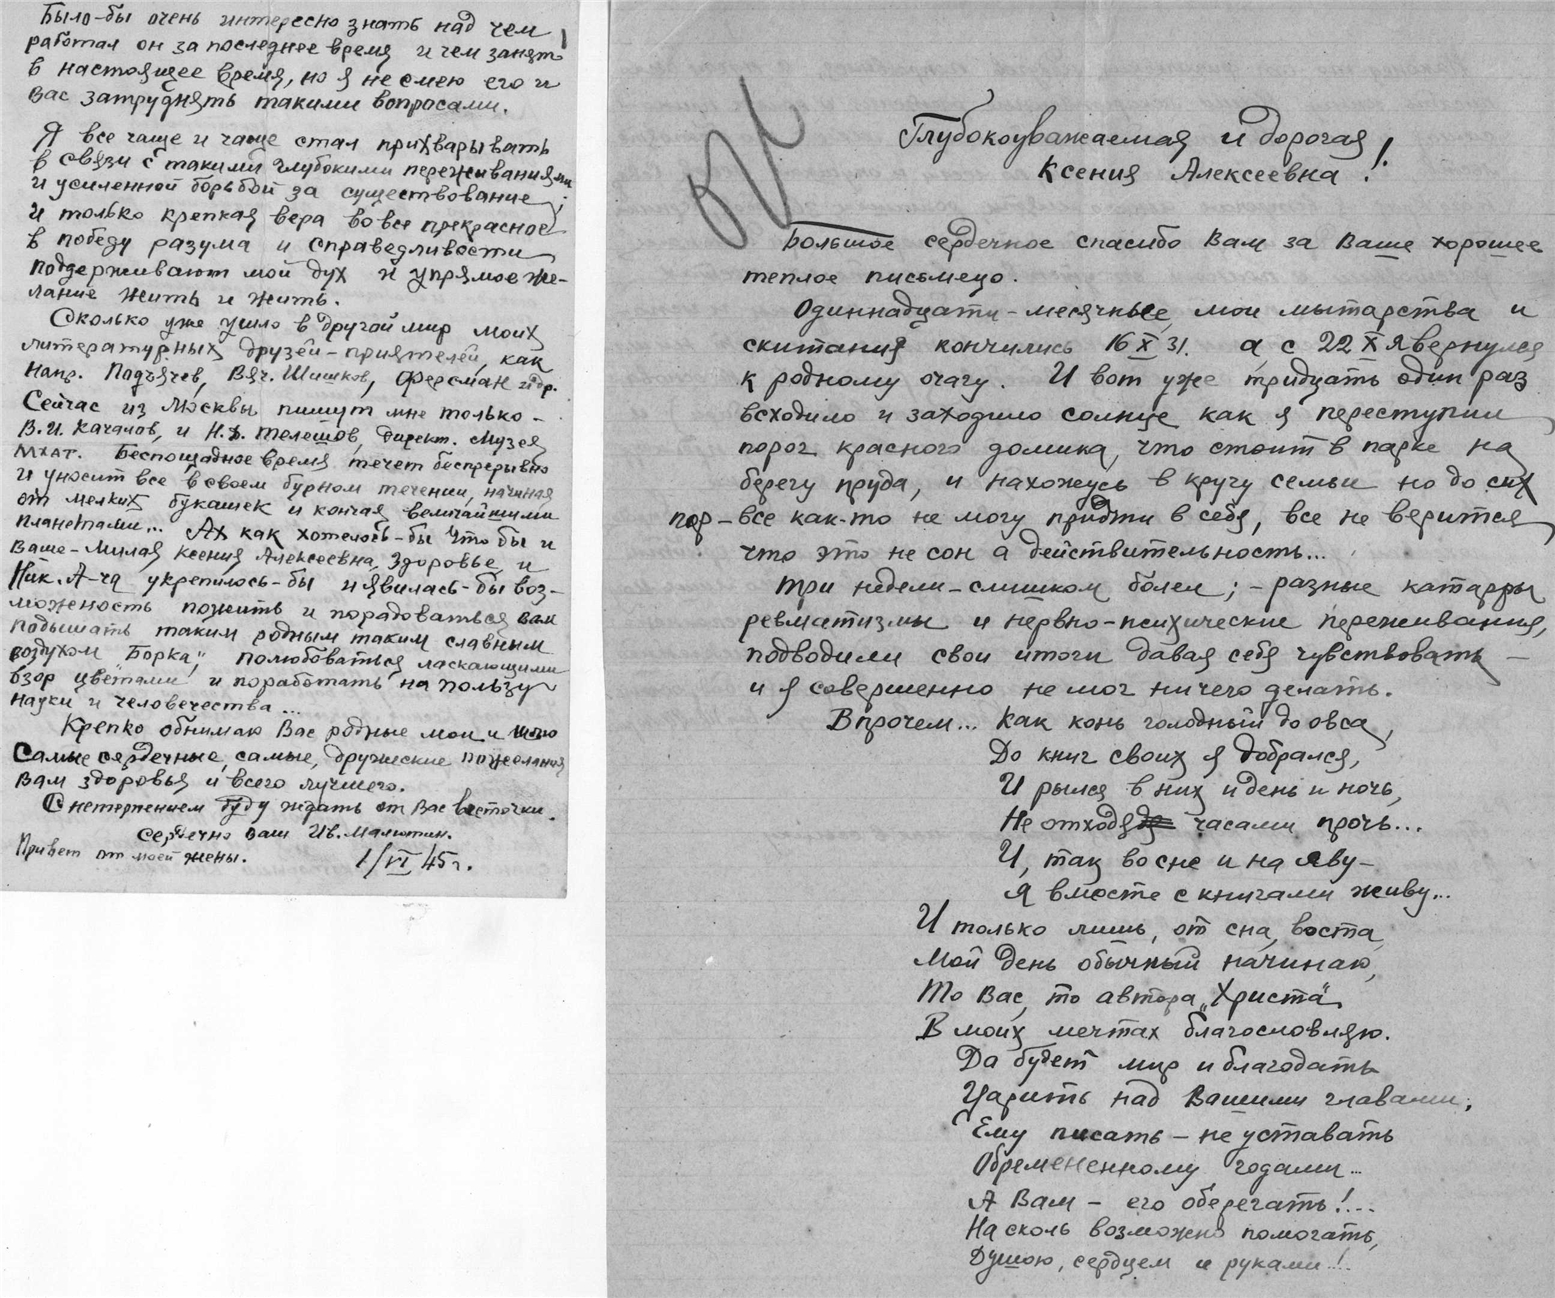 Было-бы очень интересно знать над чем
работал он за последнее время и чем занят
в настоящее время, но я не смею его и
Вас затруднять такими вопросами.
Я все чаще и чаще стал прихварывать
в связи с такими глубокими переживаниями
и усиленной борьбой за существование;
и только крепкая вера во все прекрасное
в победу разума и справедливости
поддерживают мой дух и упрямое же-
лание жить и жить.
Сколько уже ушло в другой мир моих
литературных друзей-приятелей, как
напр. Подъячев, Вяч. Шишков, Ферсман и др.
Сейчас из Москвы пишут мне только-
В.И. Качалов, и Н.Д. Телешов, директ. Музея
МХАТ. Беспощадное время течет беспрерывно
и уносит все в своем бурном течении, начиная
от мелких букашек и кончая величайшими
планетами... Ах как хотелось-бы что бы и
Ваше-милая Ксения Алексеевна, здоровье и
Ник. А-ча укрепилось-бы и явилась-бы воз-
моженость пожить и порадоваться вам
подышать таким родным таким славным
воздухом "Борка", полюбоваться ласкающими
взор цветами и поработать на пользу
науки и человечества...
Крепко обнимаю Вас родные мои и шлю
Самые сердечные, самые, дружеские пожелания
Вам здоровья и всего лучшего.
С нетерпением буду ждать от Вас весточки.
Сердечно ваш Ив. Малютин.
Привет от моей жены. 1/VI 45 г.
Глубокоуважаемая и дорогая
Ксения Алексеевна!
Большое сердечное спасибо Вам за Ваше хорошее
теплое письмецо.
Одиннадцати-месячные, мои мытарства и
скитания кончились 16 X 31. а с 22 X я вернулся
к родному очагу. И вот уже тридцать один раз
всходило и заходило солнце как я переступил
порог красного домика, что стоит в парке на
берегу пруда, и нахожусь в кругу семьи но до сих
пор-все как-то не могу придти в себя, все не верится
что это не сон а действительность...
Три недели-слишком болел; - разные катарры
ревматизмы и нервно-психические переживания,
подводили свои итоги давая себя чувствовать -
и я совершенно не мог ничего делать.
Впрочем... как конь голодный до овса,
До книг своих я добрался,
И рылся в них и день и ночь,
Не отходя часами прочь...
И, так во сне и на яву-
Я вместе с книгами живу...
И только лишь, от сна, воста,
Мой день обычный начинаю,
То Вас, то автора "Христа"
В моих мечтах благословляю.
Да будет мир и благодать
Царить над Вашими главами,
Ему писать - не уставать
Обремененному годами...
А Вам - его оберегать!...
На сколь возможно помогать,
Душою, сердцем и руками!..